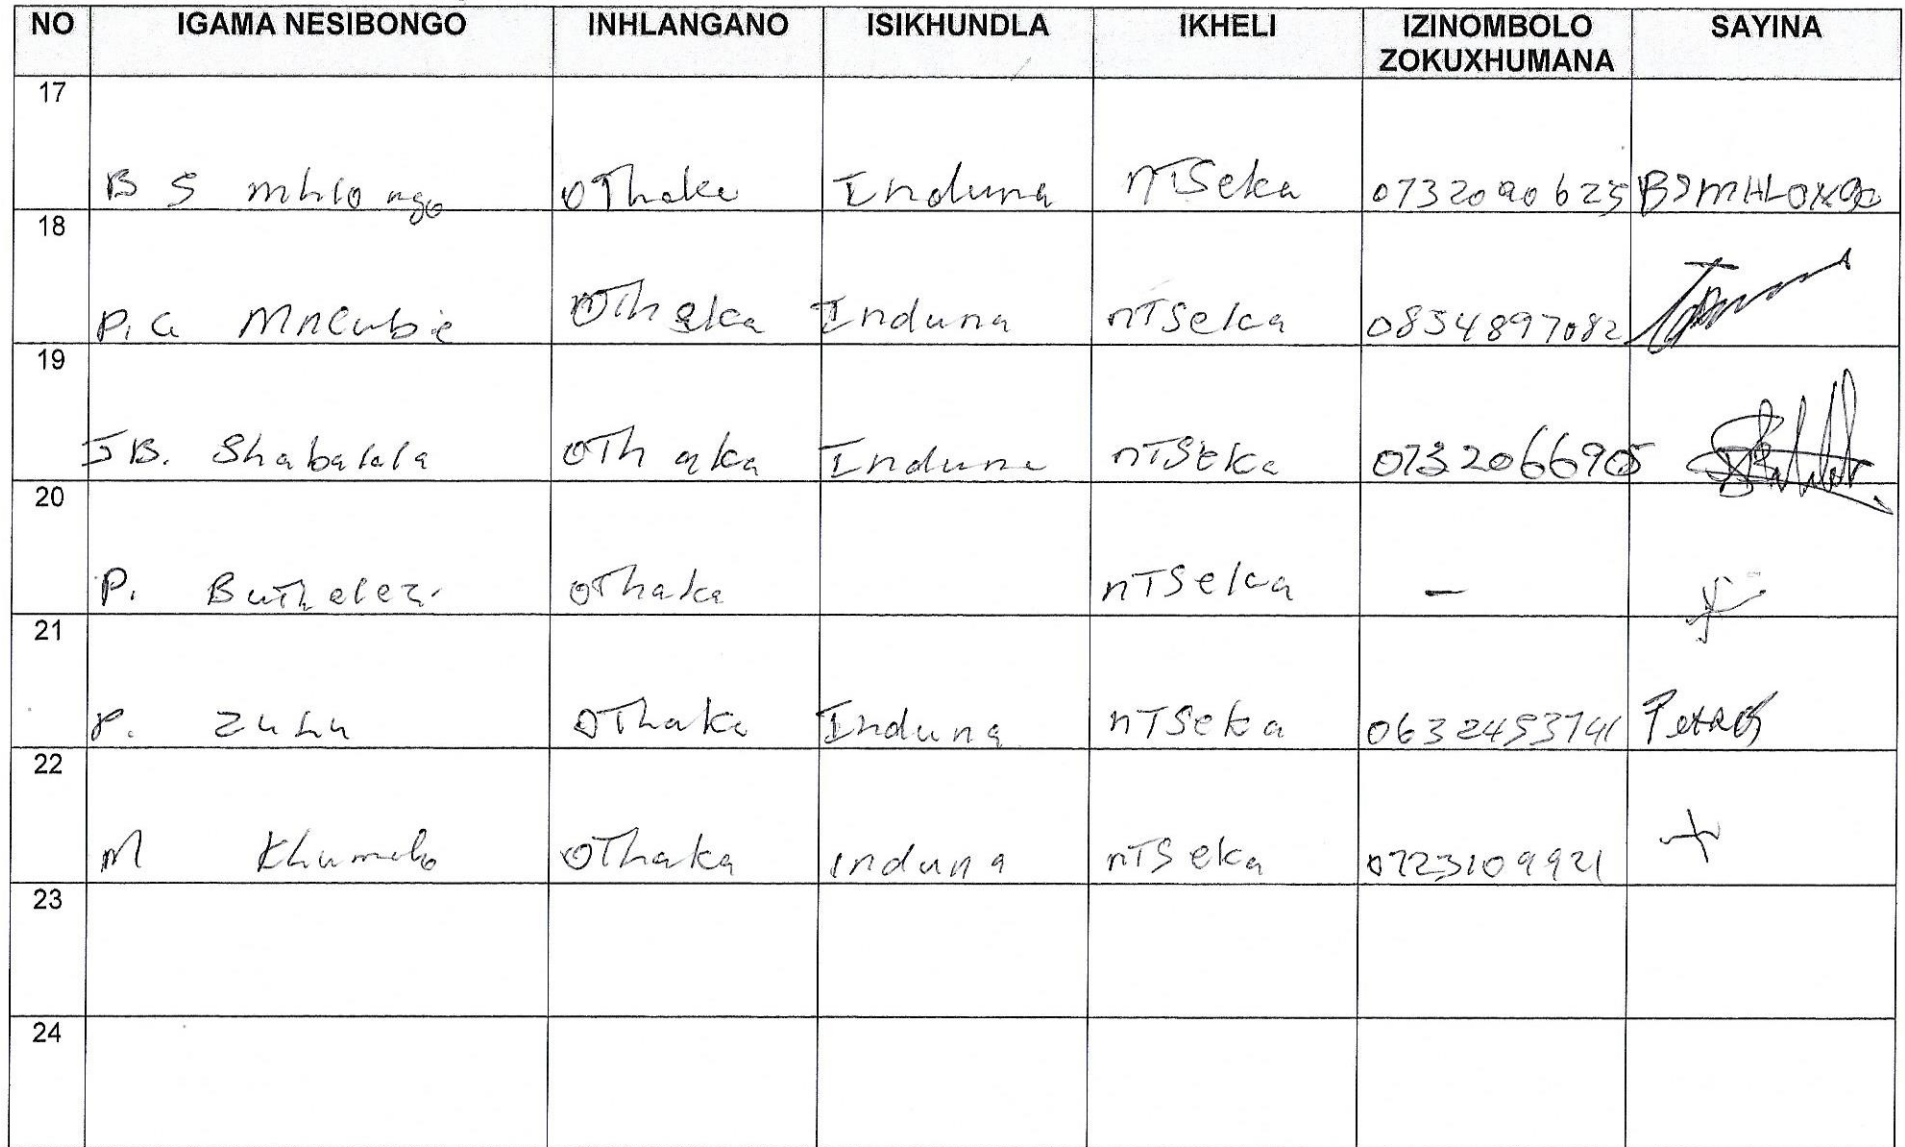 NO IGAMA NESIBONGO INHLANGANO ISIKHUNDLA IKHELI IZINOMBOLO ZOKUXHUMANA SAYINA
17
B S mhlongo oThaka Induna nTSeka 0732090625 BSMHLONgo
18
P.G Mncube oThaka Induna nTSeka 0834897082
19
JB. Shabalala oThaka Induna nTSeka 0732066905
20
P. Buthelezi oThaka nTSeka –
21
P. Zulu oThaka Induna nTSeka 0632453741 Petros
22
M Khumalo oThaka induna nTSeka 0723109921
23
24